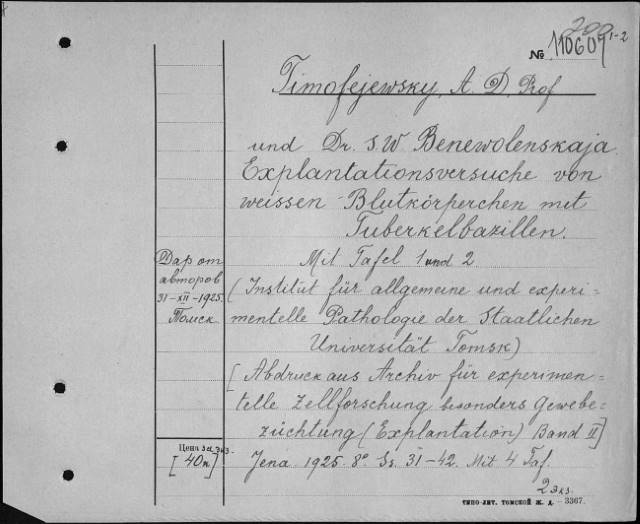 200
№ 110607 1-2
Timofejewsky, A. D. Prof
und Dr. S. W. Benewolenskaja.
Explantationsversuche von
weissen Blutkörperchen mit
Tuberkelbazillen.
Mit Tafel 1 und 2
(Institut für allgemeine und experi-
mentelle Pathologie der Staatlichen
Universität Tomsk)
[Abdruck aus Archiv für experimen-
telle Zellforschung besonders Gewebe-
züchtung (Explantation) Band II]
Jena 1925. 8° Ss. 31-42. Mit 4 Taf.
2 экз.
Дар от
авторов
31-XII-1925.
Томск
Цена за экз.
[40к.]
ТИПО-ЛИТ. ТОМСКОЙ Ж. Д. - 3367.